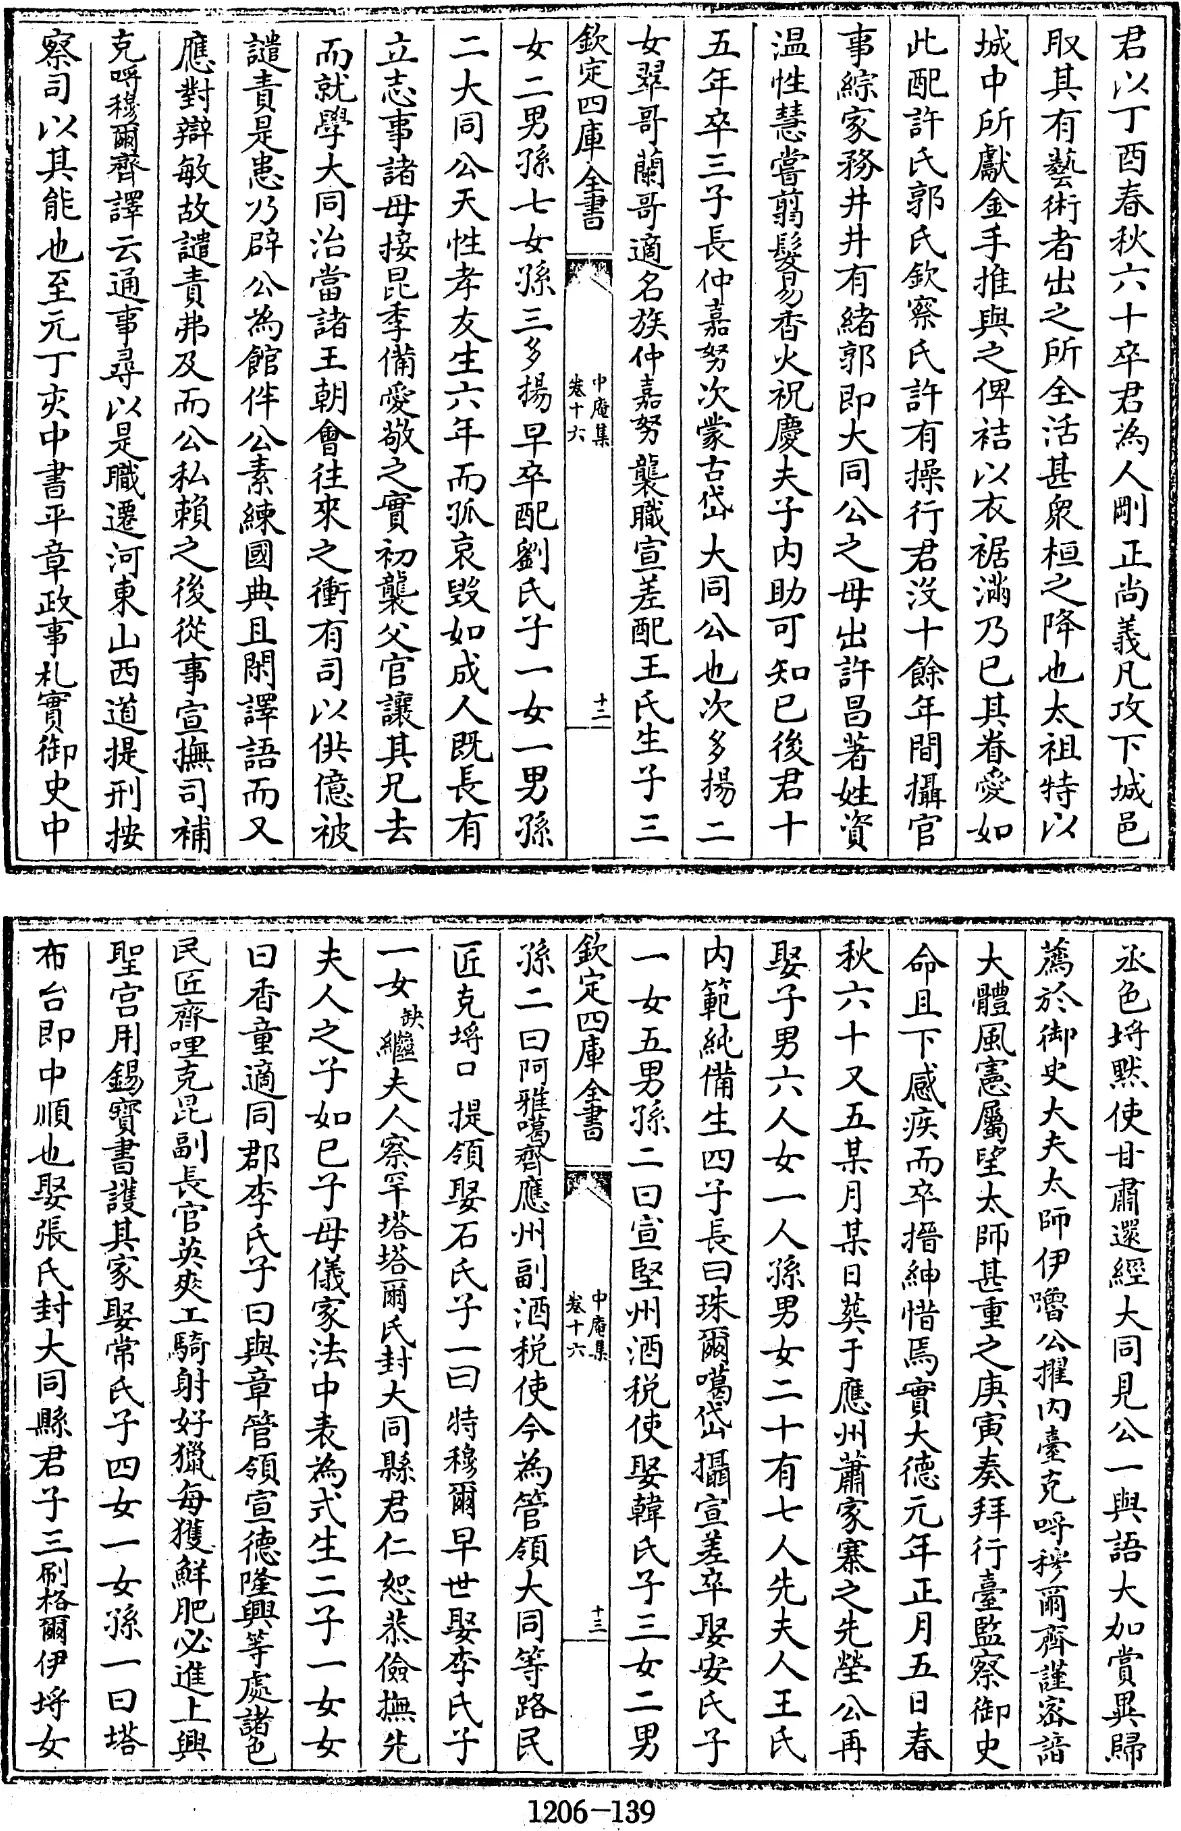 君以丁酉春秋六十卒君為人剛正尚義凡攻下城邑
取其有藝術者出之所全活甚衆桓之降也太祖特以
城中所獻金手推與之俾祜以衣裾滿乃已其眷愛如
此配許氏郭氏欽察氏許有操行君沒十餘年間攝官
事綜家務井井有緒郭即大同公之母出許昌著姓資
温性慧嘗翦髮易香火祝慶夫子内助可知已後君十
五年卒三子長仲嘉努次蒙古岱大同公也次多揚二
女翠哥蘭哥適名族仲嘉努襲職宣差配王氏生子三
欽定四庫全書
中庵集
卷十六
十二
女二男孫七女孫三多揚早卒配劉氏子一女一男孫
二大同公天性孝友生六年而孤哀毁如成人既長有
立志事諸母接昆季備愛敬之實初襲父官讓其兄去
而就學大同治當諸王朝會往來之衝有司以供億被
譴責是患乃辟公為館伴公素練國典且閑譯語而又
應對辯敏故譴責弗及而公私賴之後從事宣撫司補
克哷穆爾齊譯云通事尋以是職遷河東山西道提刑按
察司以其能也至元丁亥中書平章政事札實御史中
丞色埒默使甘肅還經大同見公一與語大加賞異歸
薦於御史大夫太師伊嚕公擢内臺克哷穆爾齊謹密諳
大體風憲屬望太師甚重之庚寅奏拜行臺監察御史
命且下感疾而卒搢紳惜焉實大德元年正月五日春
秋六十又五某月某日葬于應州蕭家寨之先塋公再
娶子男六人女一人孫男女二十有七人先夫人王氏
内範純備生四子長曰珠爾噶岱攝宣差卒娶安氏子
一女五男孫二曰宣堅州酒税使娶韓氏子三女二男
欽定四庫全書
中庵集
卷十六
十三
孫二曰阿雅噶齊應州副酒税使今為管領大同等路民
匠克埒口提領娶石氏子一曰特穆爾早世娶李氏子
一女缺繼夫人察罕塔塔爾氏封大同縣君仁恕恭儉撫先
夫人之子如已子母儀家法中表為式生二子一女女
曰香童適同郡李氏子曰與章管領宣德隆興等處諸色
民匠齊哩克昆副長官英爽工騎射好獵每獲鮮肥必進上興
聖宫用錫寶書護其家娶常氏子四女一女孫一曰塔
布台即中順也娶張氏封大同縣君子三刷格爾伊埒女
1206-139